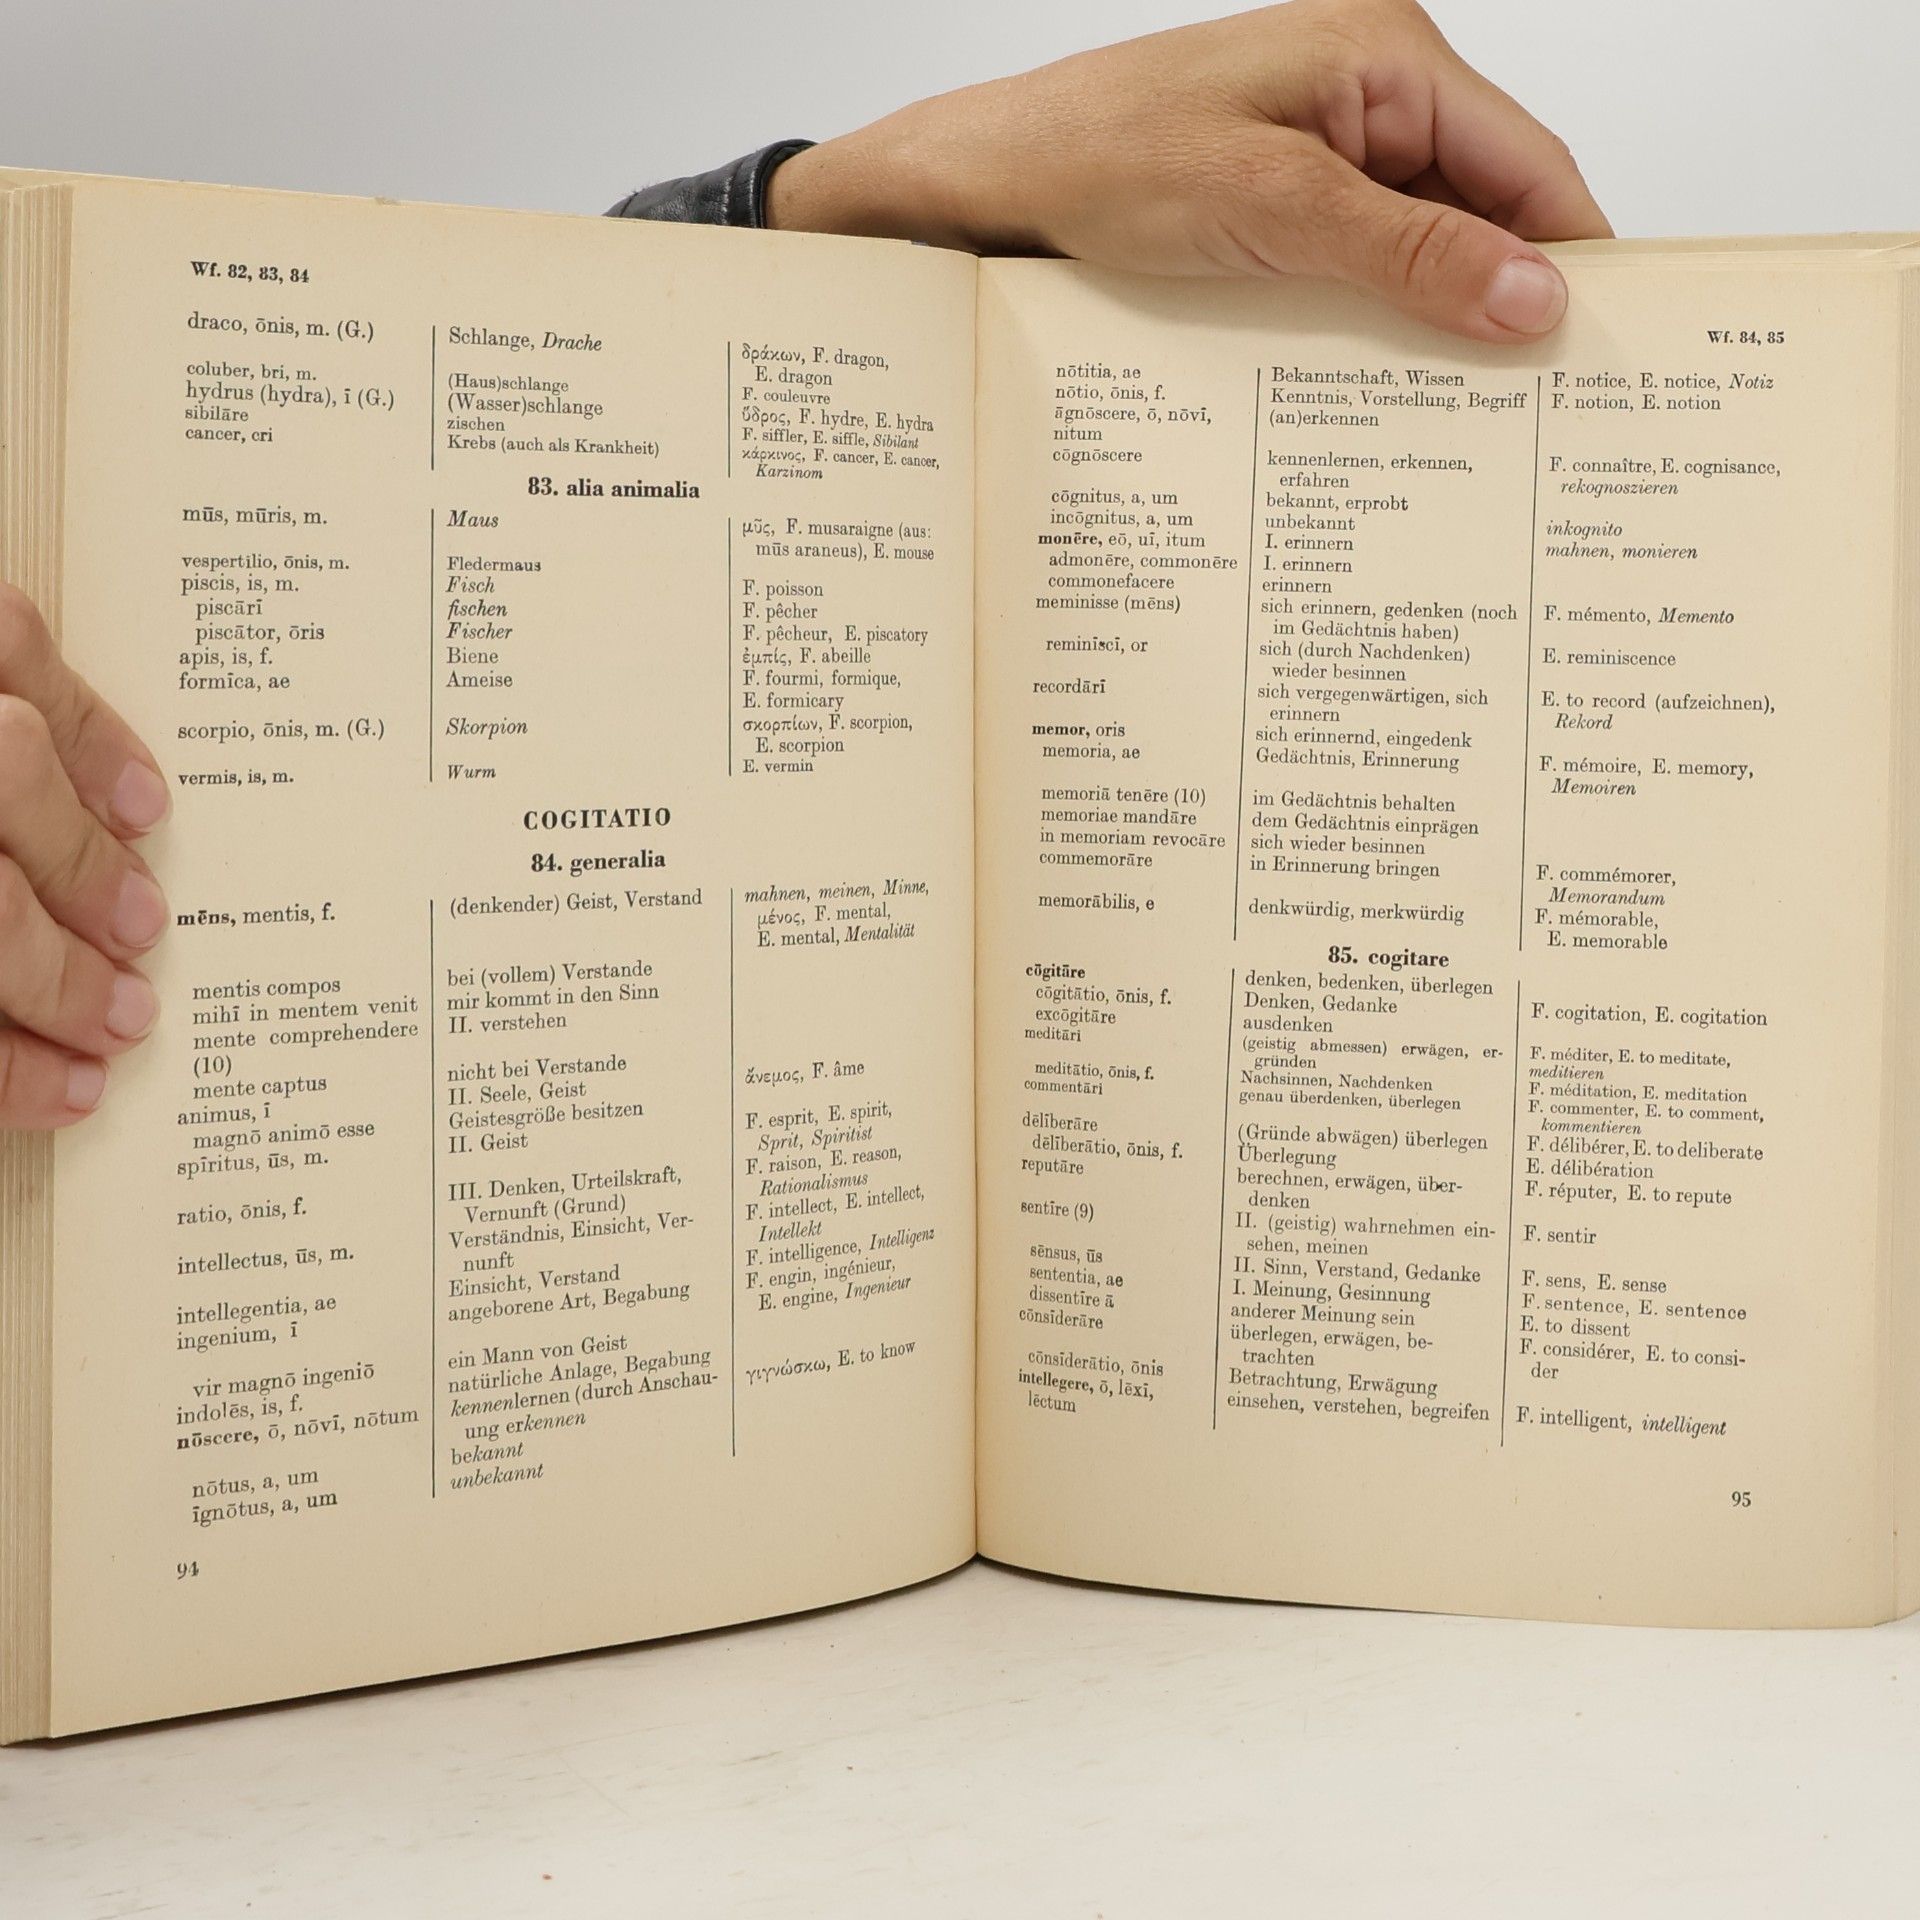 Wf. 82, 83, 84
draco, ōnis, m. (G.)
coluber, bri, m.
hydrus (hydra), ī (G.)
sibilāre
cancer, cri
Schlange, Drache
(Haus)schlange
(Wasser)schlange
zischen
Krebs (auch als Krankheit)
δράκων, F. dragon,
E. dragon
F. couleuvre
ὕδρος, F. hydre, E. hydra
F. siffler, E. siffle, Sibilant
κάρκινος, F. cancer, E. cancer,
Karzinom
83. alia animalia
mūs, mūris, m.
vespertilio, ōnis, m.
piscis, is, m.
piscārī
piscātor, ōris
apis, is, f.
formīca, ae
scorpio, ōnis, m. (G.)
vermis, is, m.
Maus
Fledermaus
Fisch
fischen
Fischer
Biene
Ameise
Skorpion
Wurm
μῦς, F. musaraigne (aus:
mūs araneus), E. mouse
F. poisson
F. pêcher
F. pêcheur, E. piscatory
ἐμπίς, F. abeille
F. fourmi, formique,
E. formicary
σκορπίων, F. scorpion,
E. scorpion
E. vermin
COGITATIO
84. generalia
mēns, mentis, f.
mentis compos
mihī in mentem venit
mente comprehendere
(10)
mente captus
animus, ī
magnō animō esse
spīritus, ūs, m.
ratio, ōnis, f.
intellectus, ūs, m.
intellegentia, ae
ingenium, ī
vir magnō ingeniō
indolēs, is, f.
nōscere, ō, nōvī, nōtum
nōtus, a, um
īgnōtus, a, um
(denkender) Geist, Verstand
bei (vollem) Verstande
mir kommt in den Sinn
II. verstehen
nicht bei Verstande
II. Seele, Geist
Geistesgröße besitzen
II. Geist
III. Denken, Urteilskraft,
Vernunft (Grund)
Verständnis, Einsicht, Ver-
nunft
Einsicht, Verstand
angeborene Art, Begabung
ein Mann von Geist
natürliche Anlage, Begabung
kennenlernen (durch Anschau-
ung erkennen
bekannt
unbekannt
mahnen, meinen, Minne,
μένος, F. mental,
E. mental, Mentalität
ἄνεμος, F. âme
F. esprit, E. spirit,
Sprit, Spiritist
F. raison, E. reason,
Rationalismus
F. intellect, E. intellect,
Intellekt
F. intelligence, Intelligenz
F. engin, ingénieur,
E. engine, Ingenieur
γιγνώσκω, E. to know
94
Wf. 84, 85
nōtitia, ae
nōtio, ōnis, f.
āgnōscere, ō, nōvī,
nitum
cōgnōscere
cōgnitus, a, um
incōgnitus, a, um
monēre, eō, uī, itum
admonēre, commonēre
commonefacere
meminisse (mēns)
reminīscī, or
recordārī
memor, oris
memoria, ae
memoriā tenēre (10)
memoriae mandāre
in memoriam revocāre
commemorāre
memorābilis, e
Bekanntschaft, Wissen
Kenntnis, Vorstellung, Begriff
(an)erkennen
kennenlernen, erkennen,
erfahren
bekannt, erprobt
unbekannt
I. erinnern
I. erinnern
erinnern
sich erinnern, gedenken (noch
im Gedächtnis haben)
sich (durch Nachdenken)
wieder besinnen
sich vergegenwärtigen, sich
erinnern
sich erinnernd, eingedenk
Gedächtnis, Erinnerung
im Gedächtnis behalten
dem Gedächtnis einprägen
sich wieder besinnen
in Erinnerung bringen
denkwürdig, merkwürdig
F. notice, E. notice, Notiz
F. notion, E. notion
F. connaître, E. cognisance,
rekognoszieren
inkognito
mahnen, monieren
F. mémento, Memento
E. reminiscence
E. to record (aufzeichnen),
Rekord
F. mémoire, E. memory,
Memoiren
F. commémorer,
Memorandum
F. mémorable,
E. memorable
85. cogitare
cōgitāre
cōgitātio, ōnis, f.
excōgitāre
meditārī
meditātio, ōnis, f.
commentārī
dēlīberāre
dēlīberātio, ōnis, f.
reputāre
sentīre (9)
sēnsus, ūs
sententia, ae
dissentīre ā
cōnsīderāre
cōnsīderātio, ōnis
intellegere, ō, lēxī,
lēctum
denken, bedenken, überlegen
Denken, Gedanke
ausdenken
(geistig abmessen) erwägen, er-
gründen
Nachsinnen, Nachdenken
genau überdenken, überlegen
(Gründe abwägen) überlegen
Überlegung
berechnen, erwägen, über-
denken
II. (geistig) wahrnehmen ein-
sehen, meinen
II. Sinn, Verstand, Gedanke
I. Meinung, Gesinnung
anderer Meinung sein
überlegen, erwägen, be-
trachten
Betrachtung, Erwägung
einsehen, verstehen, begreifen
F. cogitation, E. cogitation
F. méditer, E. to meditate,
meditieren
F. méditation, E. meditation
F. commenter, E. to comment,
kommentieren
F. délibérer, E. to deliberate
E. délibération
F. réputer, E. to repute
F. sentir
F. sens, E. sense
F. sentence, E. sentence
E. to dissent
F. considérer, E. to consi-
der
F. intelligent, intelligent
95